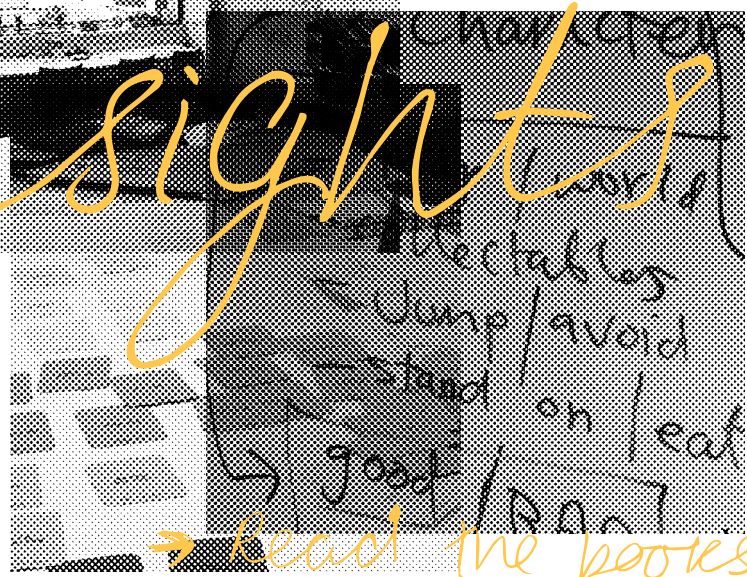 sights
Character
/ world
llectables
- Jump / avoid
- Stand on / eat
→ good / BAD
→ Read the books